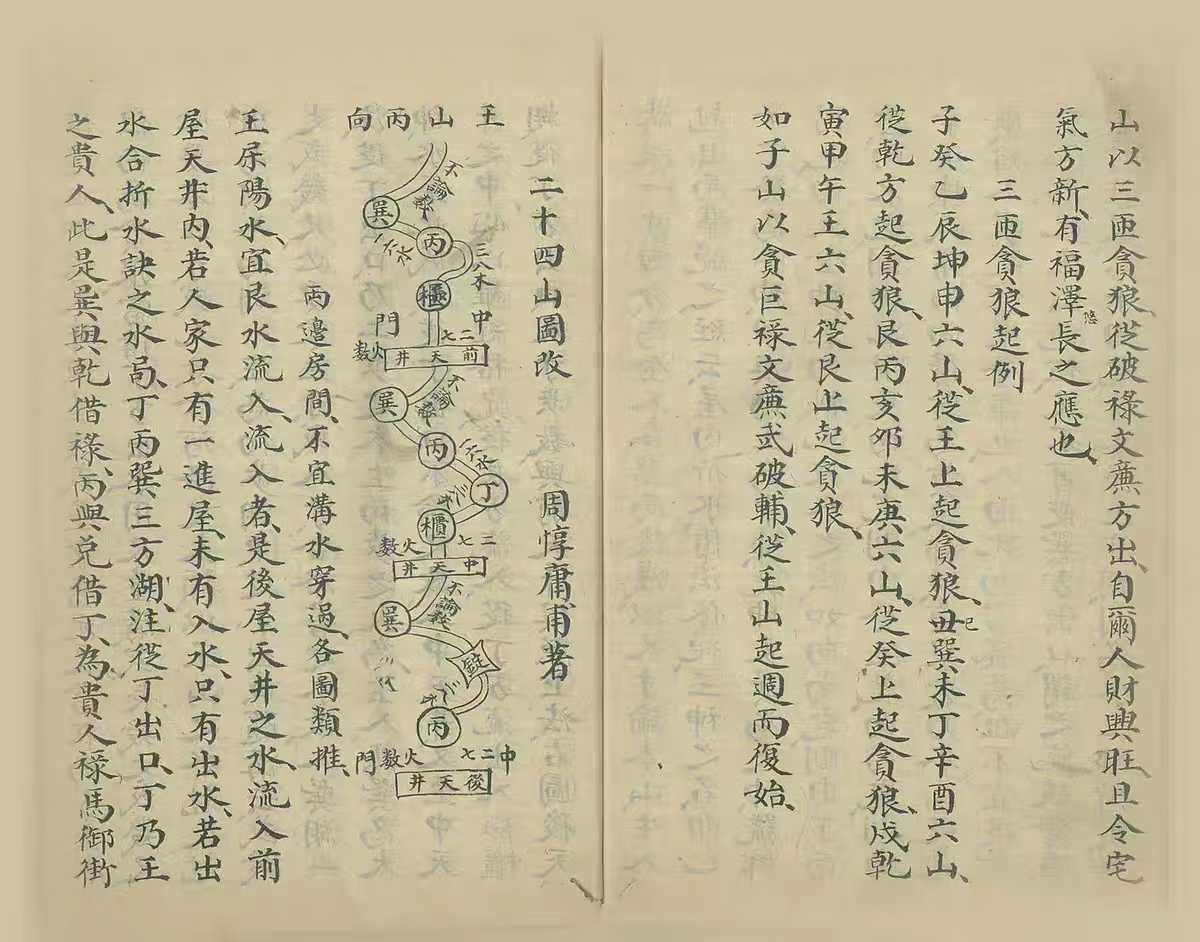 山以三匝貪狼、從破祿文㢘方出、自爾人財興旺、且令宅
氣方新、有福澤悠長之應也、
三匝貪狼起例
子癸乙辰坤申六山、從王上起貪狼、丑巳巽未丁辛酉六山、
從乾方起貪狼、艮丙亥卯未庚六山、從癸上起貪狼、戍乾
寅甲午王六山、從艮上起貪狼、
如子山以貪巨祿文㢘武破輔、從王山起週而復始、
二十四山圖改 周惇庸甫著
王山丙向
不論數
巽
一六水
丙
三八木
櫃
中
門
二七
火数
前天井
不論數
巽
丙
一六水
丁
櫃
二七
火数
中天井
不論數
巽
丙
中二七火数門
後天井
兩邊房間、不宜溝水穿過、各圖類推、
王屎陽水、宜艮水流入、流入者、是後屋天井之水、流入前
屋天井內、若人家只有一進屋、未有入水、只有出水、若出
水合折水訣之水局、丁丙巽三方湖、注從丁出口、丁乃王
之貴人、此是巽與乾借祿、丙與兌借丁、為貴人祿馬御街